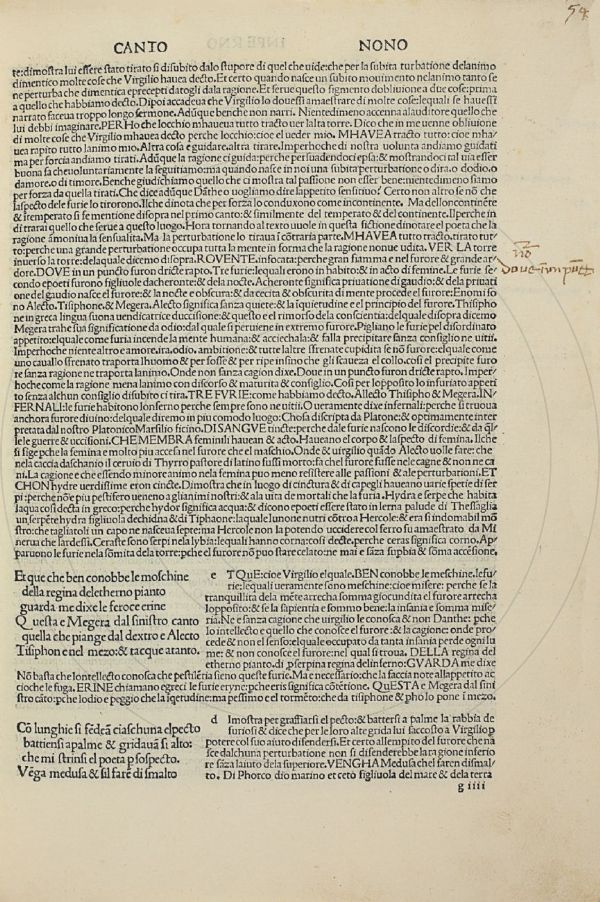 54
CANTO NONO
te:dimostra lui essere stato tirato si disubito dalo stupore di quel che uide:che per la subita turbatione delanimo
dimentico molte cose che Virgilio hauea decto. Et certo quando nasce un subito mouimento nelanimo tanto se
ne perturba che dimentica eprecepti datogli dala ragione. Et serue questo figmento dobliuione a due cose:prima
a quello che habbiamo decto. Dipoi accadeua che Virgilio lo douessi amaestrare di molte cose:lequali se hauessi
narrato faceua troppo longo sermone. Adūque benche non narri. Nientedimeno accenna alauditore quello che
lui debbi imaginare. PERHo che locchio mhaueua tutto tracto uer lalta torre. Dico che in me uenne obliuione
di molte cose che Virgilio mhauea decto perche locchio:cioe el ueder mio. MHAVEA tracto tutto:cioe mha/
uea rapito tutto lanimo mio. Altra cosa e guidare. altra tirare. Imperhoche di nostra uolunta andiamo guidati
ma per forcia andiamo tirati. Adūque la ragione ci guida:perche persuadendoci epsa:& mostrandoci tal uia esser
buona sa cheuoluntariamente la seguitiamo:ma quando nasce in noi una subita perturbatione o dira. o dodio. o
damore. o di timore. Benche giudichiamo quello che ci mostra tal passione non esser bene:nientedimeno siamo
per forza da quella tirati. Che dice adūque Dāthe o uogliamo dire lappetito sensitiuo? Certo non altro se nō che
laspecto dele furie lo tirorono. Ilche dinota che per forza lo conduxono come incontinente. Ma dellontinēte
& itemperato si se mentione disopra nel primo canto:& similmente del temperato & del continente. Ilperche in
di trarai quello che serue a questo luogo. Hora tornando al texto uuole in questa fictione dinotare el poeta che la
ragione āmoniua la sensualita. Ma la perturbatione lo tiraua īcōtraria parte. MHAVEA tutto tracto. tirato tut/
to:perche una grande perturbatione occupa tutta la mente in forma che la ragione nonue udita. VER LA torre
inuerso la torre:delaquale dicemo disopra. ROVENTE. infocata:perche gran fiamma e nel furore & grande ar/
dore. DOVE in un puncto furon dricte rapto. Tre furie:lequali erono in habito:& in acto di femine. Le furie se/
condo epoeti furono figliuole dacheronte:& dela nocte. Acheronte significa priuatione di gaudio:& dela priuati
one del gaudio nasce el furore:& la nocte e obscura:& da cecita & obscurita di mente procede el furore. Enomi so
no Alecto. Tisiphone. & Megera. Alecto significa sanza quiete:& la īquietudine e el principio del furore. Thisipho
ne in greca lingua suona uendicatrice duccisione:& questo e el rimorso dela conscientia:delquale disopra dicemo
Megera trahe sua significatione da odio:dal quale si peruiene in extremo furore. Pigliano le furie pel disordinato
appetito:elquale come furia incende la mente humana:& acciechala:& falla precipitare sanza consiglio ne uitii.
Imperhoche niente altro e amore. ira. odio. ambitione:& tutte laltre sfrenate cupidita se nō furore:elquale come
uno cauallo sfrenato traporta lhuomo & per fosse & per ripe insino che gli fiaccha el collo. cosi el precipite furo
re sanza ragione ne traporta lanimo. Onde non sanza cagion dixe. Doue in un puncto furon dricte rapto. Imper/
hoche come la ragione mena lanimo con discorso & maturita & consiglio. Cosi per lopposito lo infuriato appeti
to senza alchun consiglio disubito ci tira. TRE FVRIE: come habbiamo decto. Allecto Thisipho & Megera. IN
FERNALI:le furie hābitono lonferno perche sempre sono ne uitii. Oueramente dixe infernali:perche si truoua
anchora furore diuino:delquale diremo in piu comodo luogo: Chosa discripta da Platone:& optimamente inter
pretata dal nostro Platonico Marsilio ficino. DI SANGVE tincte:perche dale furie nascono le discordie:& da q̄l/
le le guerre & uccisioni. CHE MEMBRA feminili hauean & acto. Haueano el corpo & laspecto di femina. Ilche
si fige pche la femina e molto piu accesa nel furore che el maschio. Onde & uirgilio quādo Alecto uolle fare:che
nela caccia daschanio il ceruio di Thyrro pastore di latino fussi morto:fa chel furore fusse nele cagne & non ne ca
ni. La cagione e che essendo minore animo nela femina puo meno resistere alle passioni & ale perturbationi. ET
CHON hydre uerdissime eron cincte. Dimostra che in luogo di cinctura & di capegli haueano uarie sperie di ser
pi:perche nōne piu pestifero ueneno a gli animi nostri:& ala uita de mortali che la furia. Hydra e serpe che habita
laqua cosi decta in greco:perche hydor significa acqua:& dicono epoeti essere stato in lerna palude di Thessaglia
un serpēte hydra figliuola dechidna & di Tiphaone:la quale Iunone nutri cōtro a Hercole:& era si indomabil mō
stro:che tagliatoli un capo ne nasceua septe:ma Hercole non la potendo uccidere col ferro su amaestrato da Mi
nerua che lardessi. Ceraste sono serpi nela lybia:lequali hanno corna:cosi decte. perche ceras significa corno. Ap/
paruono le furie nela sōmita dela torre:pche el furore nō puo stare celato:ne mai e sāza supbia & sōma accēsione.
nō
doue ī un pūct
Et que che ben conobbe le meschine
della regina delletherno pianto
guarda me dixe le feroce erine
Questa e Megera dal sinistro canto
quella che piange dal dextro e Alecto
Tisiphon e nel mezo:& tacque atanto.
e T QVE:cioe Virgilio elquale. BEN conobbe le meschine. lefu/
rie:lequali ueramente sono meschine:cioe misere: perche se la
tranquillita dela mēte arrecha somma giocundita el furore arrecha
lopposito:& se la sapientia e sommo bene:la insania e somma mise/
ria. Ne e sanza cagione che uirgilio le conosca & non Danthe: pche
lo intellecto e quello che conosce el furore:& la cagione:onde pro/
cede & non el senso:elquale occupato da tanta insania perde ogni lu
me:& non conosce el furore:nel qual si troua. DELLA regina del
etherno pianto. di pserpina regina delinferno: GVARDA me dixe
Nō basta che lontellecto conosca che pestilētia sieno queste furie. Ma e necessario:che la faccia note allappetito ac
cioche le fuga. ERINE chiamano egreci le furie eryne:pche eris significa cōtētione. QuESTA e Megera dal sini
stro cāto:pche lodio e peggio che la īqetudine:ma pessimo e el tormēto:che da tisiphone & pho lo pone ī mezo.
Cō lunghie si fēdea ciaschuna el pecto
battiensi a palme & gridauā si alto:
che mi strinsi el poeta p sospecto.
Vēga medusa & sil farē di smalto
d Imostra per graffiarsi el pecto:& battersi a palme la rabbia de
furiosi & dice che per lo loro alte grida lui saccosto a Virgilio p
potere col suo aiuto difendersi. Et certo allempito del furore che na
sce dalchuna perturbatione non si difenderebbe la ragione inferio
re sāza laiuto dela superiore. VENGHA Medusa chel faren dismal/
to. Di Phorco dio marino et ceto figliuola del mare & dela terra
g iiii